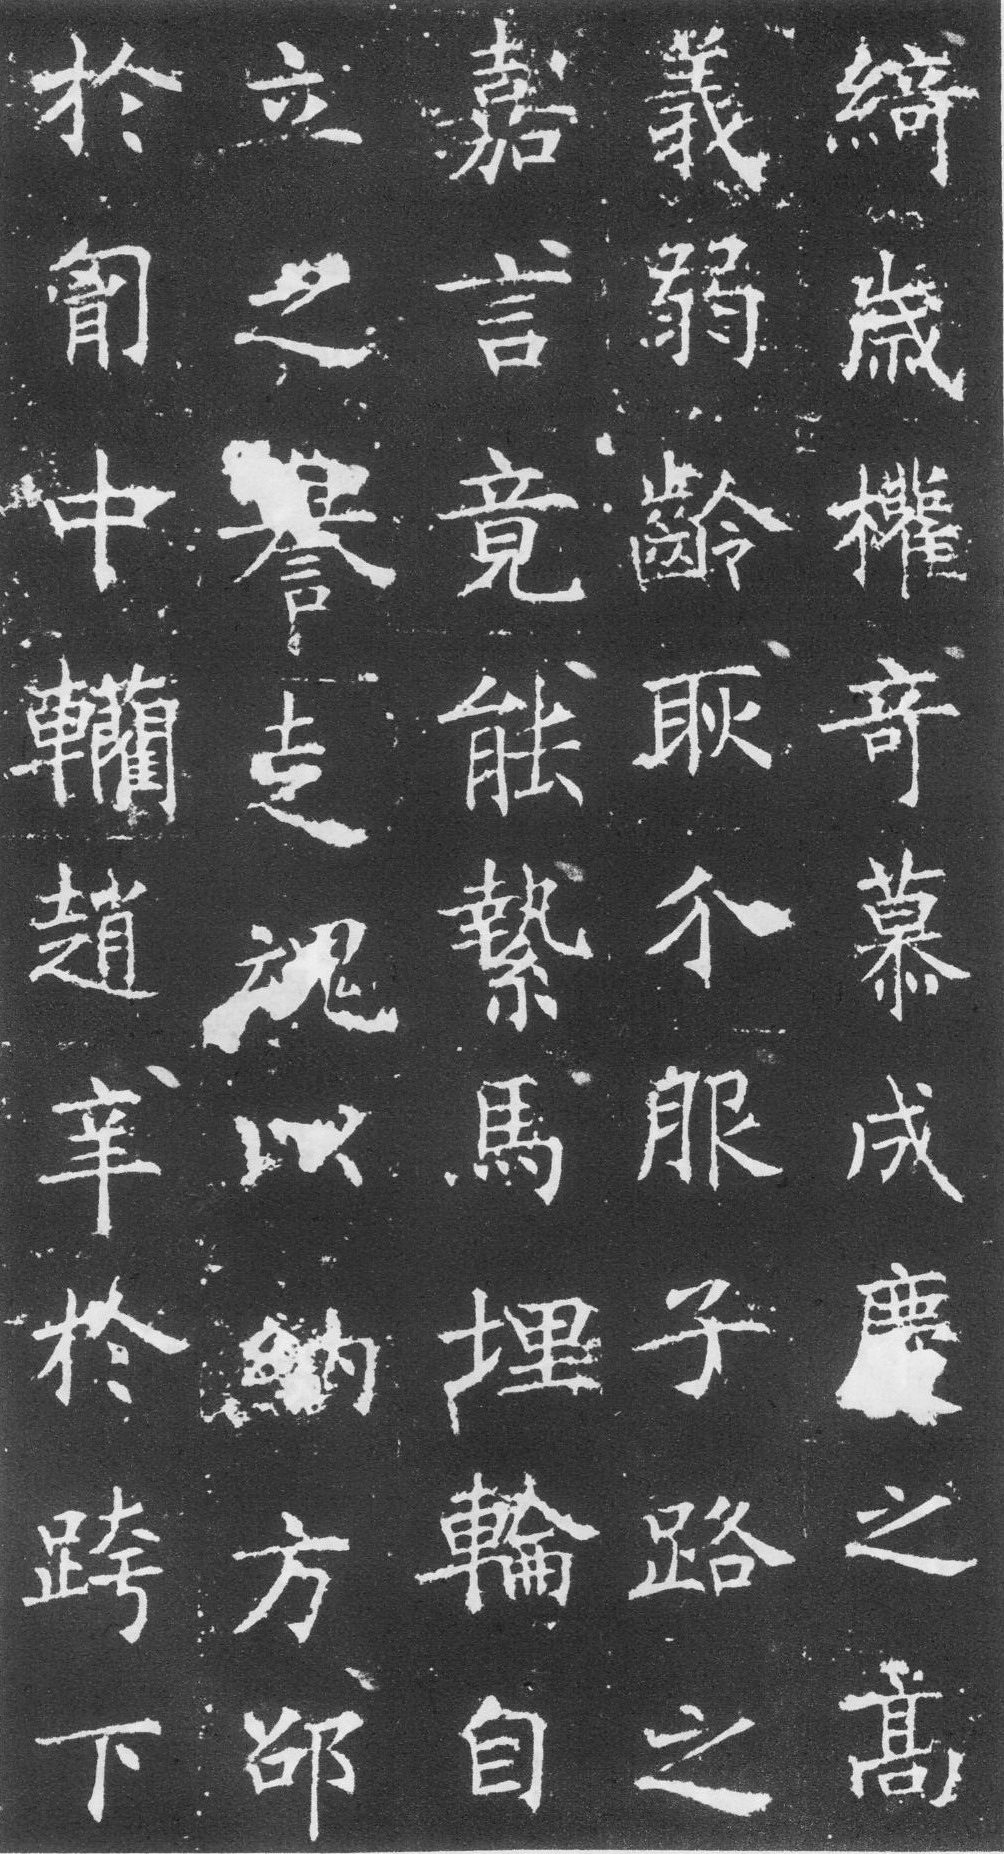 綺歲權奇慕成慶之高
義弱齡耿介服子路之
嘉言竟能縶馬埋輪自
立之譽走魂以納方邵
於胷中轥趙辛於跨下